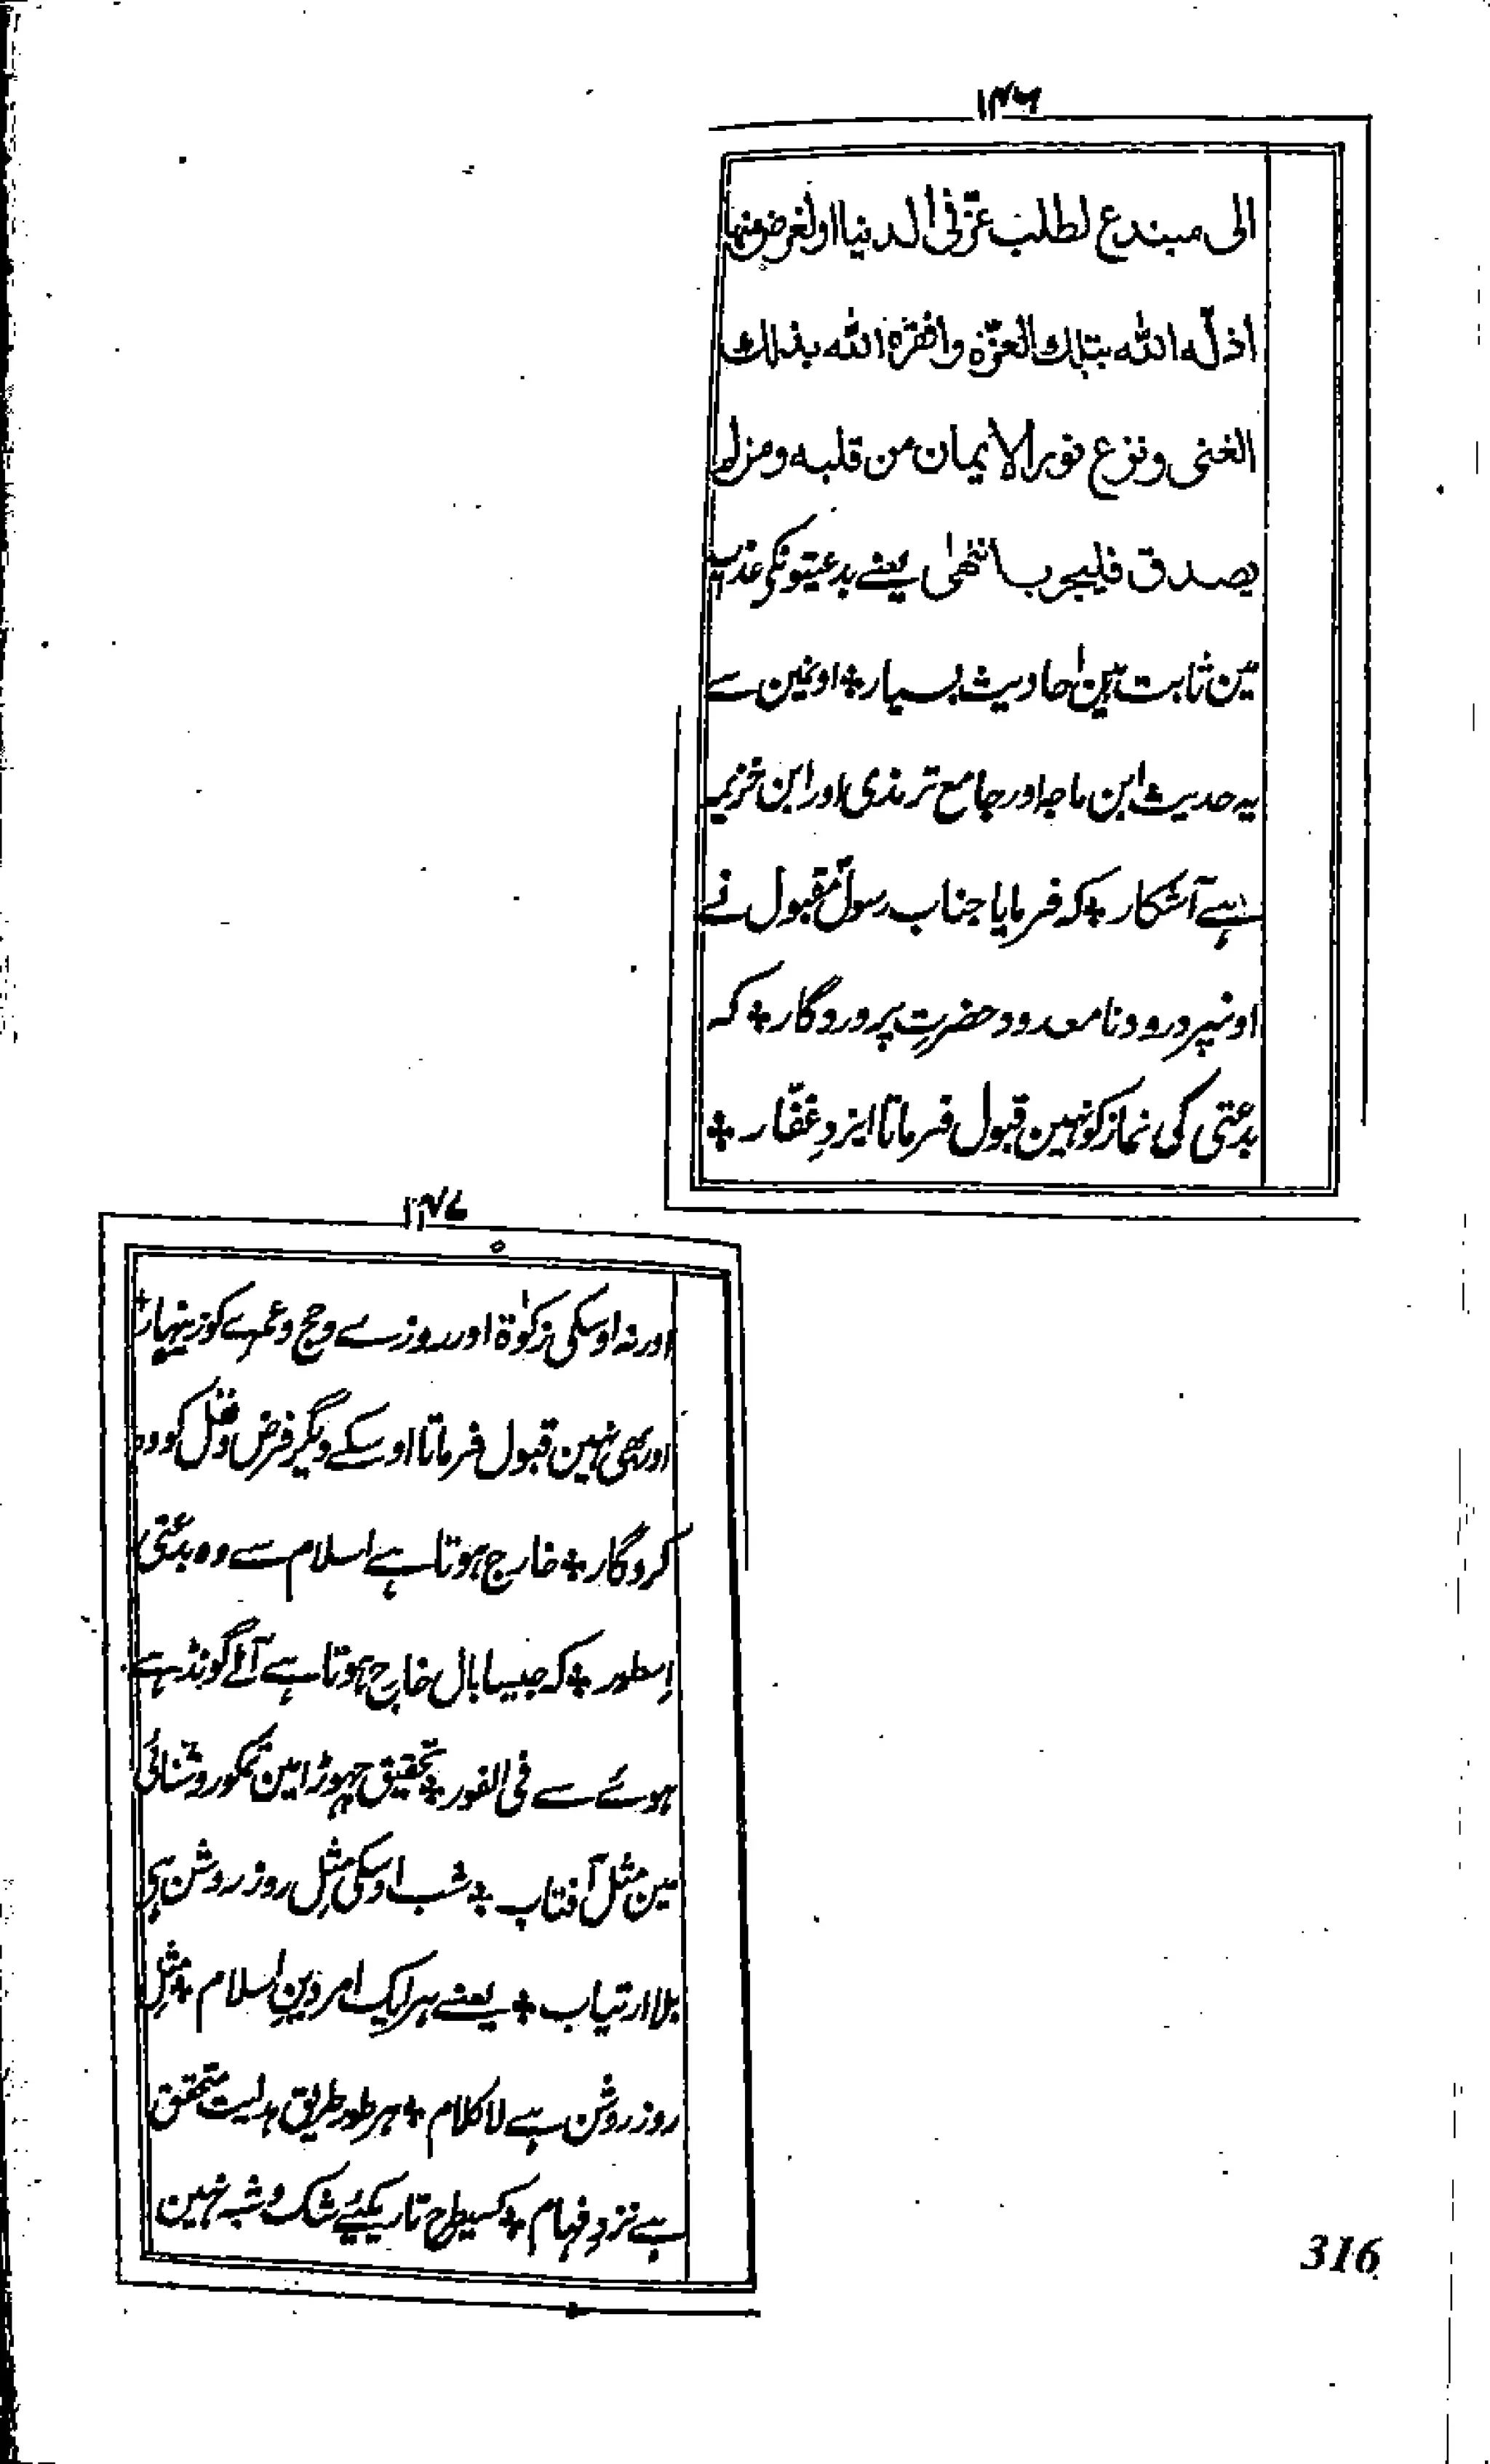 ۱۴۶
الی مبتدع لطلب عزّ فی الدنیا اولغرض منها
اذلّه الله بتلك العزّة وافقره الله بذلك
الغنی ونزع نور الایمان من قلبه ومن لم
یصدق فلیجرب انتهٰی یعنے بدعتیونکی مذمت
مین ثابت ہین احادیث بسیار ٭ اونمین سے
یہ حدیث ابن ماجہ اور جامع ترمذی اور ابن خزیمہ
ہے آشکار ٭ کہ فرمایا جناب رسول مقبول نے
اونپر درود نامعدود حضرتِ پروردگار ٭ کہ
بدعتی کی نماز کو نہین قبول فرماتا ایزدِ غفّار ٭
۱۴۷
اور نہ اوسکی زکوٰۃ اور روزے و حج و عمرے کو زینہار ٭
اور بھی نہین قبول فرماتا اوسکے دیگر فرض و نفل کو وہ
کردگار ٭ خارج ہوتا ہے اسلام سے وہ بدعتی
اِسطور ٭ کہ جیسا بال خارج ہوتا ہے آٹے گوندہے
ہوئے سے فی الفور ٭ تحقیق چہوڑا مین تمکو روشنائی
مین مثل آفتاب ٭ شب اوسکی مثلِ روز روشن ہی
بلا ارتیاب ٭ یعنے ہر ایک امر دینِ اسلام ٭ مثلِ
روز روشن ہے لاکلام ٭ ہر طور طریق ہدایت متحقق
ہے نزدِ فہام ٭ کسیطرح تاریکیٔے شک و شبہ نہین
316